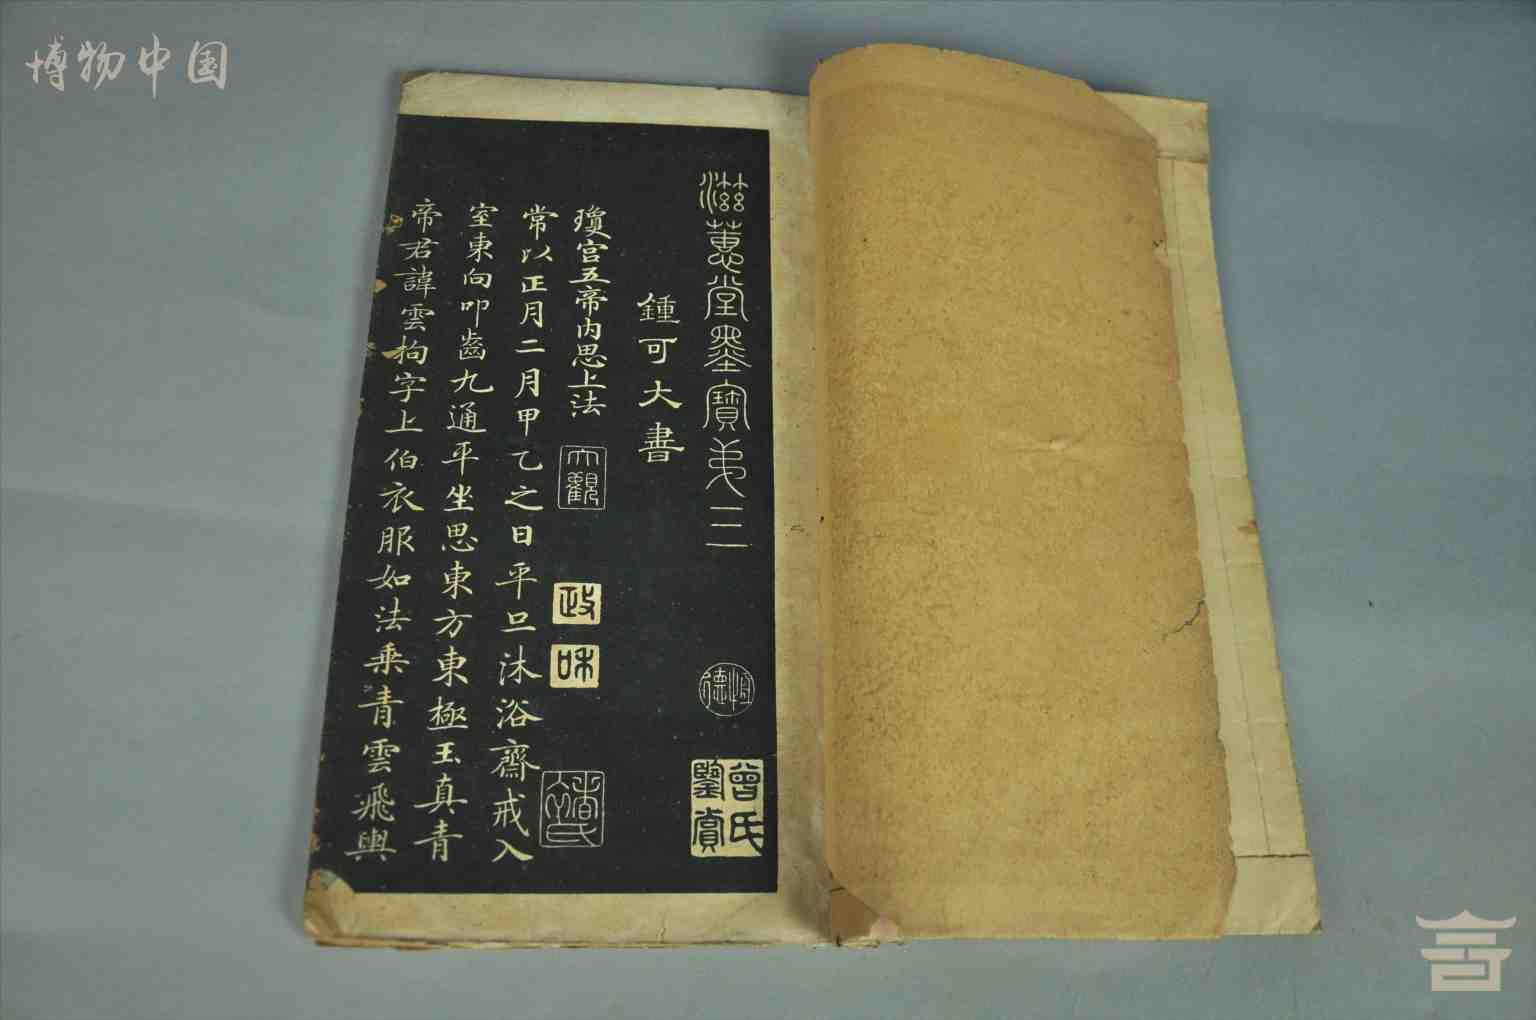 博物中国
滋蕙堂墨寶弟三
恒德
曾氏鑒賞
鍾可大書
瓊宮五帝內思上法
大觀
政
和
常以正月二月甲乙之日平旦沐浴齋戒入
室東向叩齒九通平坐思東方東極玉真青
帝君諱雲拘字上伯衣服如法乘青雲飛輿